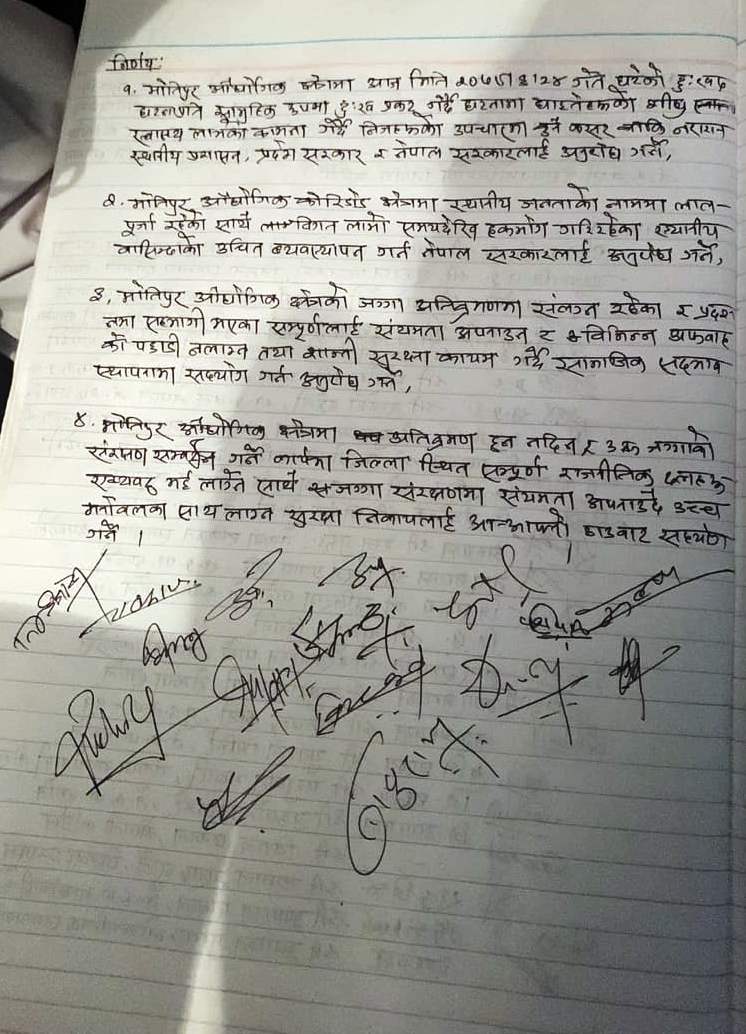 निर्णयः
१. मोतिपुर औद्योगिक क्षेत्रमा आज मिति २०७५।९।२४ गते घटेको दुःखद
घटनाप्रति सामुहिक रुपमा दुःख प्रकट गर्दै घटनामा घाइतेहरुको शीघ्र
स्वास्थ्य लाभको कामना गर्दै निजहरुको उपचारमा कुनै कसर बाकि नराख्न
स्थानीय प्रशासन, प्रदेश सरकार र नेपाल सरकारलाई अनुरोध गर्ने,
२. मोतिपुर औद्योगिक कोरिडोर क्षेत्रमा स्थानीय जनताको नाममा लाल-
पूर्जा रहेको साथै विगत लामो समयदेखि हकभोग गरिरहेका स्थानीय
वासिन्दाको उचित ब्यवस्थापन गर्न नेपाल सरकारलाई अनुरोध गर्ने,
३. मोतिपुर औद्योगिक क्षेत्रको जग्गा अतिक्रमणमा संलग्न रहेका र प्रदर्श-
नमा सहभागी भएका सम्पूर्णलाई संयमता अपनाउन र विभिन्न अफवाह
को पछाडी नलाग्न तथा शान्ती सुरक्षा कायम गर्दै सामाजिक सदभाव
स्थापनामा सहयोग गर्न अनुरोध गर्ने,
४. मोतिपुर औद्योगिक क्षेत्रमा अतिक्रमण हुन नदिन र उक्त जग्गाको
संरक्षण सम्वर्द्धन गर्ने कार्यमा जिल्ला स्थित सम्पूर्ण राजनीतिक दलहरु
एक्यवद्ध भई लाग्ने साथै जग्गा संरक्षणमा संयमता अपनाउदै उच्च
मनोवलका साथ लाग्न सुरक्षा निकायलाई आ-आफ्नो ठाउवाट सहयोग
गर्ने ।